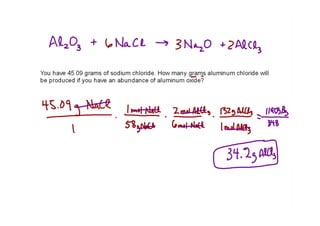 Al₂O₃ + 6NaCl → 3Na₂O + 2AlCl₃
You have 45.09 grams of sodium chloride. How many grams aluminum chloride will
be produced if you have an abundance of aluminum oxide?
45.09 g NaCl / 1 · 1 mol NaCl / 58 g NaCl · 2 mol AlCl₃ / 6 mol NaCl · 132 g AlCl₃ / 1 mol AlCl₃ = / 348
34.2 g AlCl₃